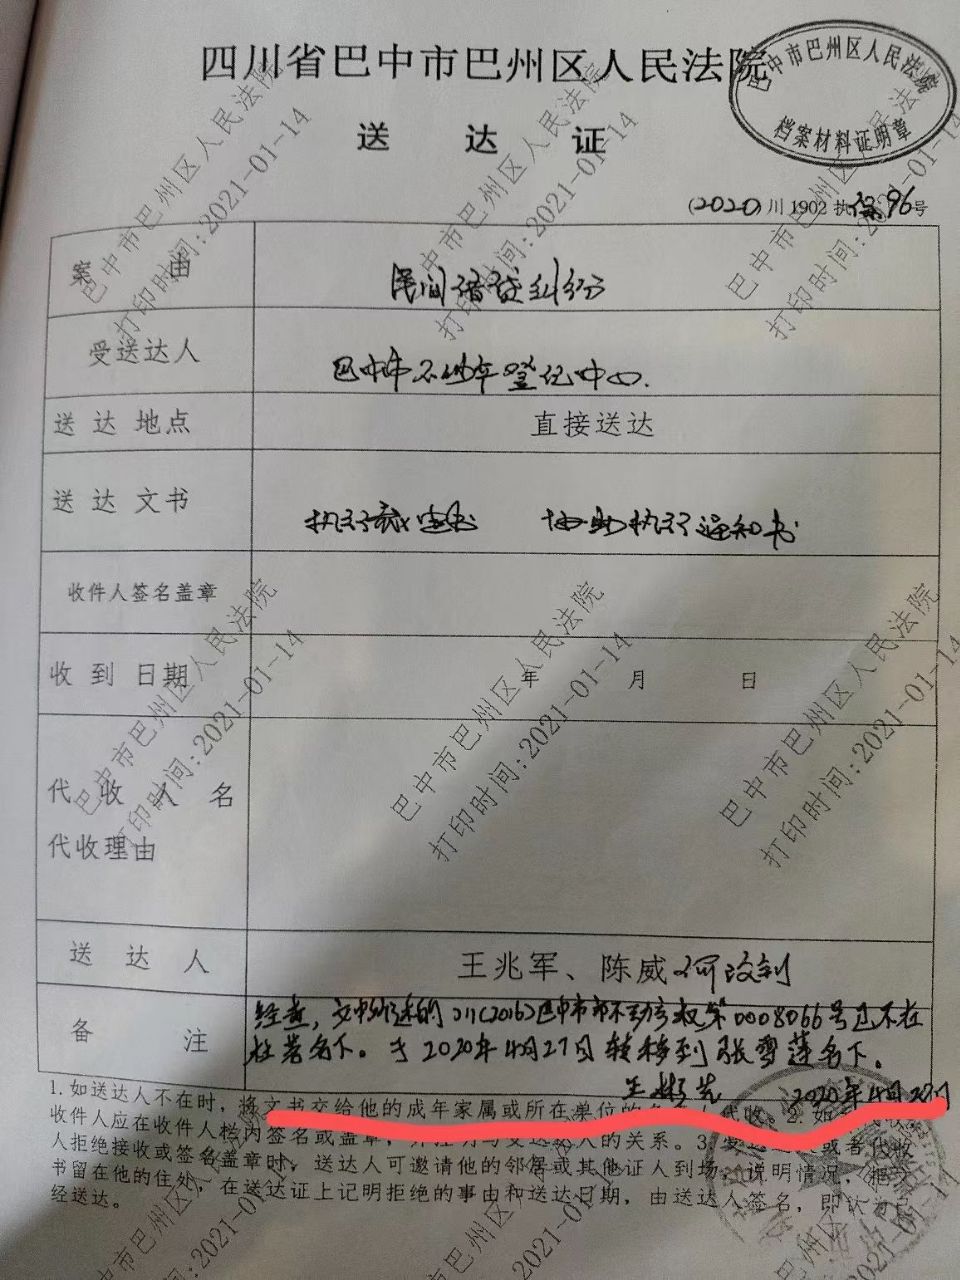 四川省巴中市巴州区人民法院
巴中市巴州区人民法院
档案材料证明章
送 达 证
(2020)川1902执保96号
案 由
民间借贷纠纷
受送达人
巴中市不动产登记中心.
送 达 地点
直接送达
送 达 文书
执行裁定书 协助执行通知书
收件人签名盖章
收 到 日期
年 月 日
代 收 人 名
代收理由
送 达 人
王兆军、陈威
备 注
经查，文中所述的川(2016)巴中市不动产权第0008066号已不在
名下。于2020年4月27日转移到张雪莲名下。
2020年4月27日
1.如送达人不在时，将文书交给他的成年家属或所在单位的 代收。2.如
收件人应在收件人栏内签名或盖章，并注明与受送达人的关系。3.受送达人或者代收
人拒绝接收或签名盖章时，送达人可邀请他的邻居或其他证人到场，说明情况，把文
书留在他的住处，在送达证上记明拒绝的事由和送达日期，由送达人签名，即认为已
经送达。
巴中市巴州区人民法院
打印时间:2021-01-14
巴中市巴州区人民法院
打印时间:2021-01-14
巴中市巴州区人民法院
打印时间:2021-01-14
巴中市巴州区人民法院
打印时间:2021-01-14
巴中市巴州区人民法院
打印时间:2021-01-14
巴中市巴州区人民法院
打印时间:2021-01-14